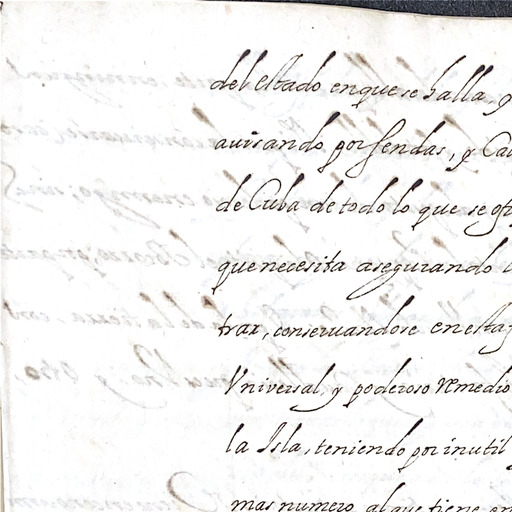 del estado en que se halla
auisando por sendas, y
de Cuba de todo lo que se
que necesita asegurando
trar, conseruandose en esta
Vniversal, y poderoso remedio
la Isla, teniendo por inutil
mas numero al que tiene